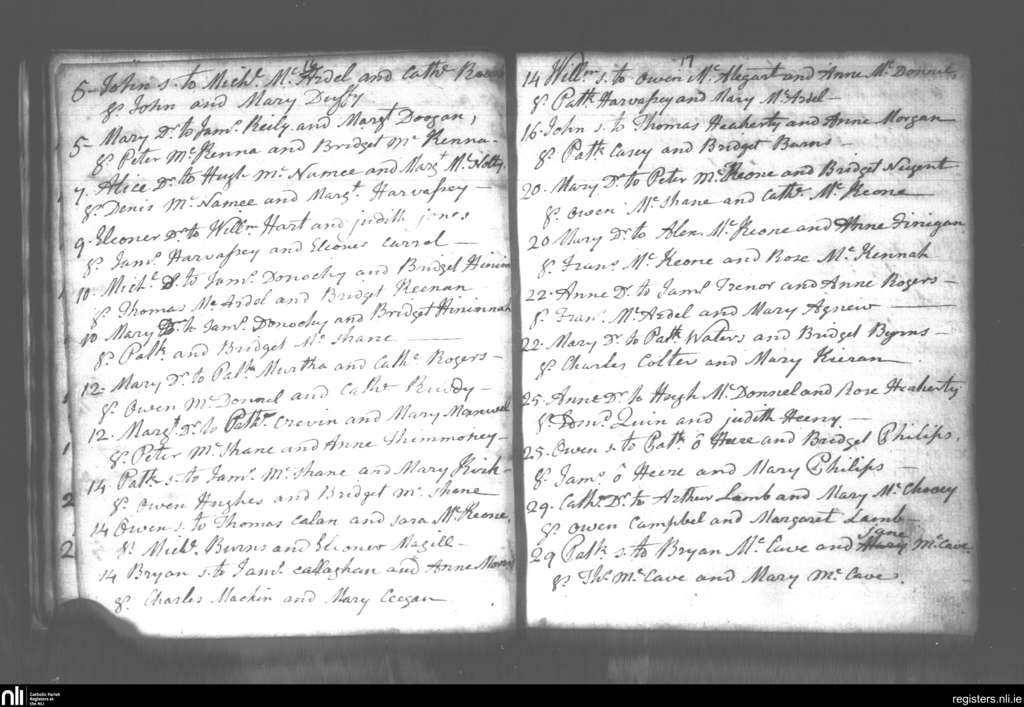 16
5- John s. to Mich.l Mc Ardel and Cath.e
g.s John and Mary Duffy
5- Mary D.r to Jam.s Reily and Marg.t Doogan,
g.s Peter Mc Kenna and Bridget Mc Kenna-
7. Alice D.r to Hugh Mc Namee and Marg.t Mc Nolty
g.s Denis Mc Namee and Marg.t Harvassey-
9. Eleoner D.r to Will.m Hart and judith jones
g.s Jam.s Harvassey and Eleoner Carrol-
10. Mich.l s. to Jam.s Donochy and Bridget
g.s Thomas Mc Ardel and Bridget Keenan
10 Mary D.r to Jam.s Donochy and Bridget Hininnah
g.s Pat.k and Bridget Mc Shane
12- Mary D.r to Pat.k Murtha and Cath.e Rogers-
g.s Owen Mc Donnel and Cath.e Ruddy-
12. Marg.t D.r to Patk. Crevin and Mary Maxwell
g.s Peter Mc Shane and Anne Thimmoney-
14 Pat.k s. to Jam.s Mc Shane and Mary Kirk-
g.s Owen Hughes and Bridget Mc Shane
14 Owen s. to Thomas Calan and Sara Mc Keone,
g.s Mich.l Burns and Eleoner Magill-
14 Bryan s. to Jam.s Callaghan and Anne
g.s Charles Mackin and Mary Ceegan
17
14 Will.m s. to Owen Mc Alegart and Anne Mc Donnel,
g.s Pat.k Harvassey and Mary Mc Ardel-
16. John s. to Thomas Heaherty and Anne Morgan
g.s Pat.k Casey and Bridget Burns-
20. Mary D.r to Peter Mc Keone and Bridget Nugent
g.s Owen Mc Shane and Cath.e Mc Keone
20 Mary D.r to Alex. Mc Keone and Anne Finegan
g.s Fran.s Mc Keone and Rose Mc Kennah
22. Anne D.r to Jam.s Trenor and Anne Rogers-
g.s Fran.s Mc Ardel and Mary Agnew-
22. Mary D.r to Pat.k Waters and Bridget Byrns-
g.s Charles Colter and Mary Kieran
25. Anne D.r to Hugh Mc Donnel and Rose Heaherty
g.s Quin and judith Heeny-
25. Owen s. to Pat.k ô Heere and Bridget Philips,
g.s Jam.s ô Heere and Mary Philips-
29. Cath.e D.r to Arthur Lamb and Mary Mc Chooey
g.s Owen Campbel and Margaret Lamb-
29 Pat.k s. to Bryan Mc Cave and Mc Cave
g.s Th.s Mc Cave and Mary Mc Cave.
nli Catholic Parish
Registers at
the NLI
registers.nli.ie